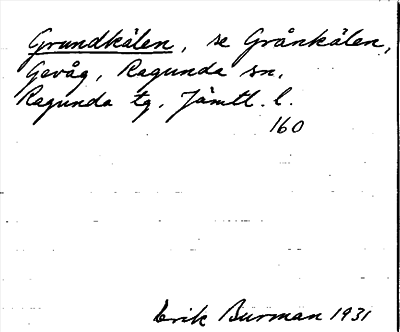 Grundkälen, se Grånkälen,
Gevåg, Ragunda sn.
Ragunda tg. Jämtl. l.
160
Erik Burman 1931